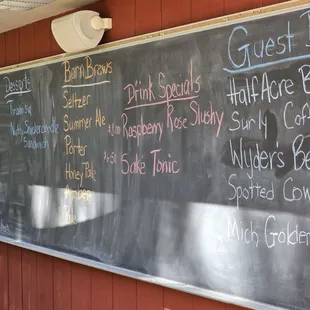 Desserts
Tiramisu
Nutty Snickerdoodle
Sandwich
Barn Braws
Seltzer
Summer Ale
Porter
Honey Pale
Amber
Drink Specials
Raspberry Rose Slushy
Sake Tonic
Guest
Half Acre
Surly
Wyder's
Spotted Cow
Mich Golden